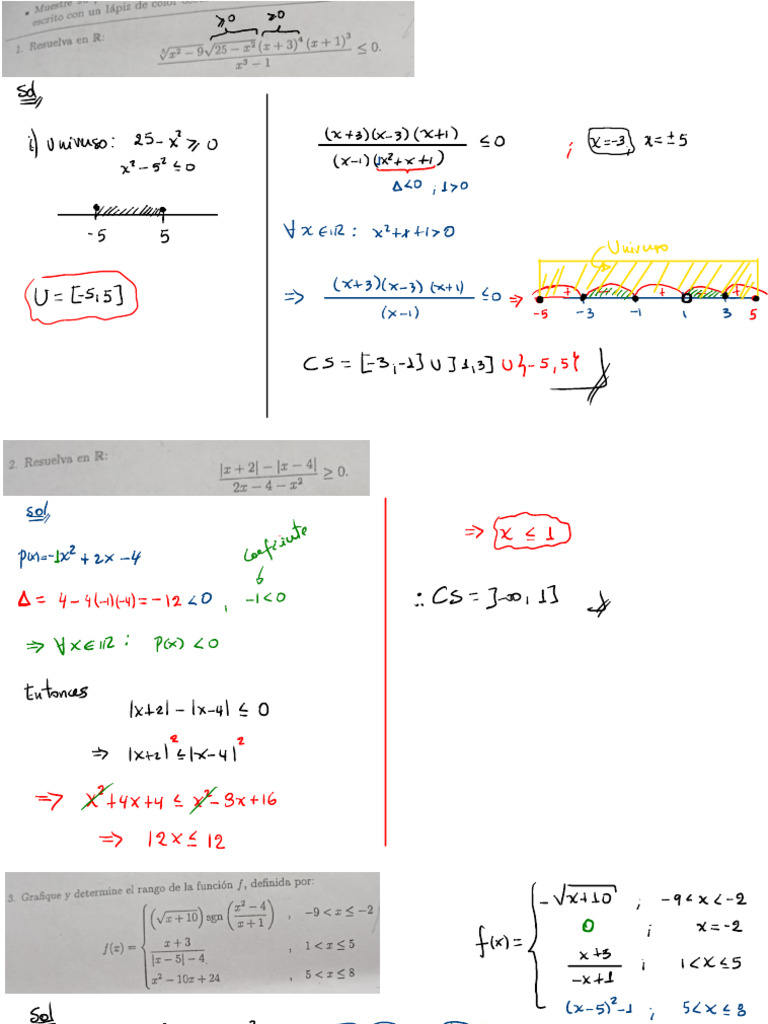 • Muestre su p
escrito con un lápiz de color
1. Resuelva en ℝ:
≥0 ≥0
\frac{\sqrt[5]{x^2-9}\sqrt{25-x^2}(x+3)^4(x+1)^3}{x^3-1} ≤ 0.
Sol
i) Universo: 25-x² ≥ 0
x²-5² ≤ 0
-5 5
U = [-5,5]
\frac{(x+3)(x-3)(x+1)}{(x-1)(1x²+x+1)} ≤ 0 ; x=-3, x=±5
Δ<0 , 1>0
∀x∈ℝ: x²+x+1>0
Universo
⇒ \frac{(x+3)(x-3)(x+1)}{(x-1)} ≤ 0 ⇒
+ + + +
-5 -3 -1 1 3 5
CS = [-3,-1] U ]1,3] U {-5,5}
2. Resuelva en ℝ:
\frac{|x+2|-|x-4|}{2x-4-x^2} ≥ 0.
sol
P(x)=-1x²+2x-4
coeficiente
Δ = 4-4(-1)(-4)=-12<0 , -1<0
⇒ ∀x∈ℝ: P(x)<0
Entonces
|x+2|-|x-4| ≤ 0
⇒ |x+2|² ≤ |x-4|²
⇒ x²+4x+4 ≤ x²-8x+16
⇒ 12x ≤ 12
⇒ x ≤ 1
∴ CS = ]-∞,1]
3. Grafique y determine el rango de la función f, definida por:
f(x) =
(\sqrt{x+10}) sgn(\frac{x^2-4}{x+1}) , -9 < x ≤ -2
\frac{x+3}{|x-5|-4} , 1 < x ≤ 5
x²-10x+24 , 5 < x ≤ 8
f(x) =
-\sqrt{x+10} ; -9<x<-2
0 ; x=-2
\frac{x+3}{-x+1} ; 1<x≤5
(x-5)²-1 ; 5<x≤8
Sol